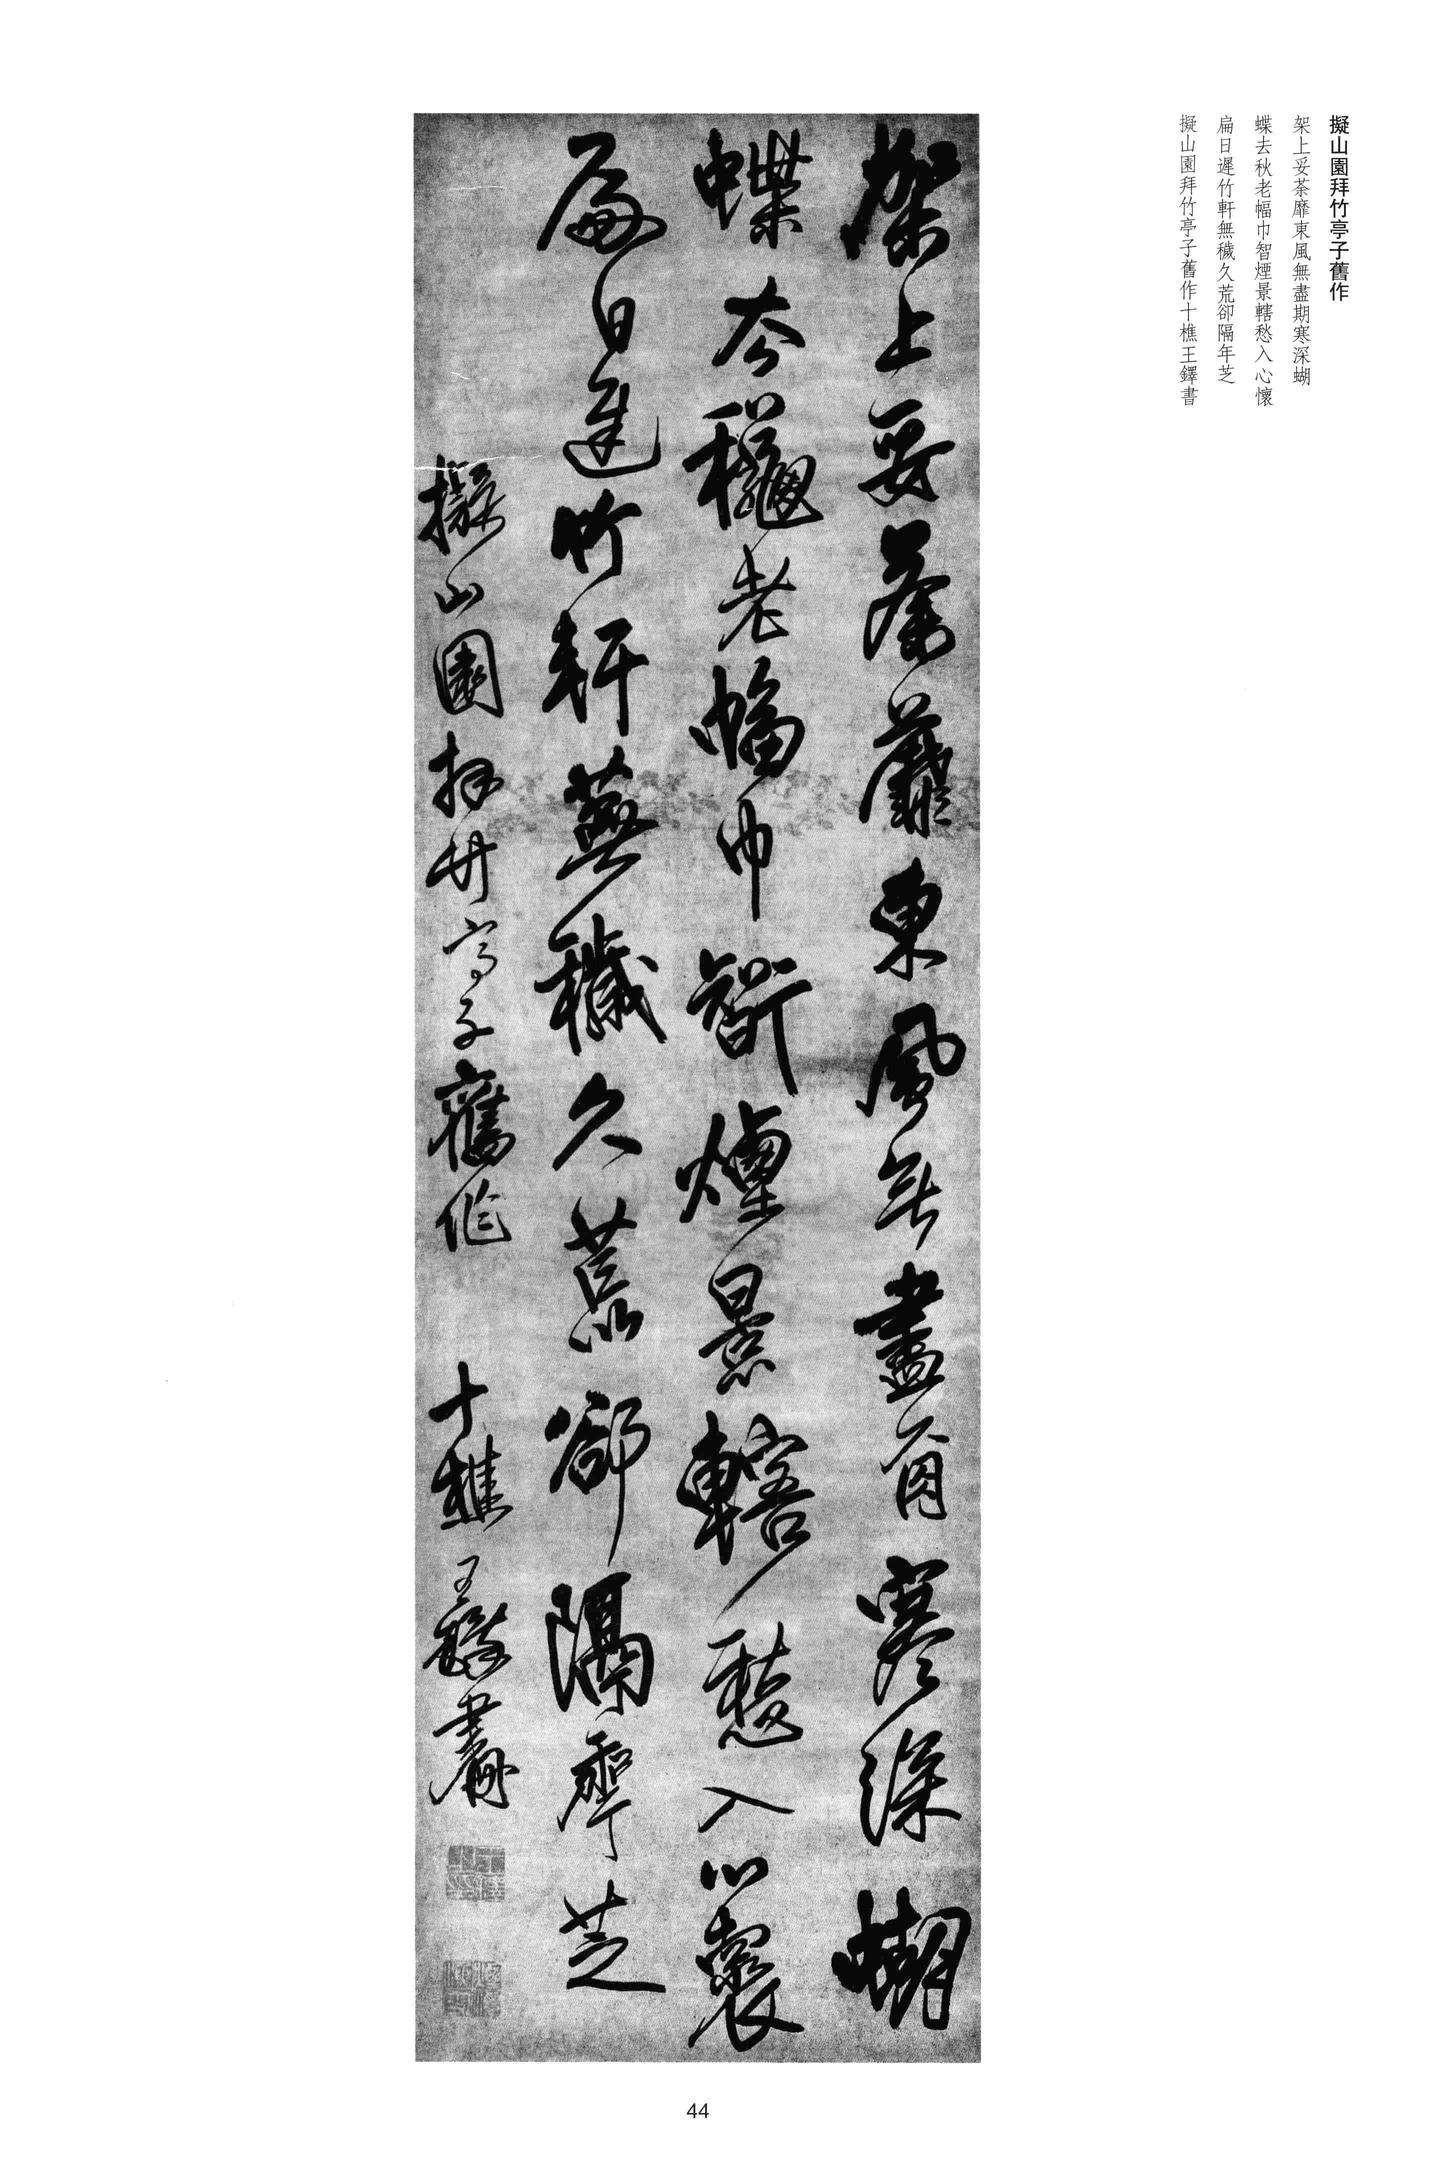 擬山園拜竹亭子舊作
架上妥荼靡東風無盡期寒深蝴
蝶去秋老幅巾智煙景轄愁入心懷
扁日遲竹軒無穢久荒卻隔年芝
擬山園拜竹亭子舊作十樵王鐸書
架上妥荼蘼東風無盡肎寒深蝴
蝶去龝老幅巾智煙景轄愁入心裏
扁日遲竹軒蕪穢久荒卻隔年芝
擬山園拜竹亭子舊作 十樵王鐸書
44